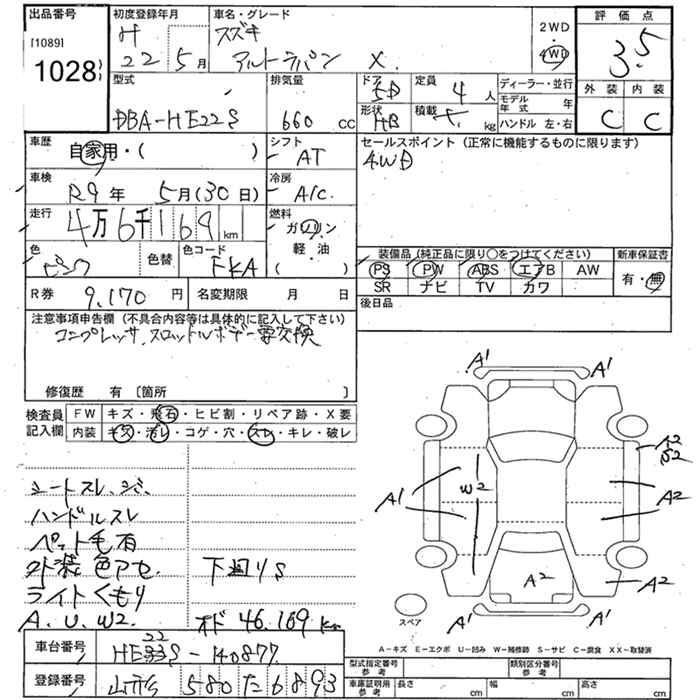 出品番号
[1089]
1028
初度登録年月
H
22 5月
車名・グレード
スズキ
アルトラパン X
2WD
・
4WD
評価点
3.5
外装 内装
C C
型式
DBA-HE22S
排気量
660 cc
ドア
5D
形状
HB
定員
4人
積載
kg
ディーラー・並行
モデル年式 年
ハンドル 左・右
車歴
自家用・( )
シフト
AT
セールスポイント (正常に機能するものに限ります)
4WD
車検
R9年 5月(30日)
冷房
A/C
走行
4万6千169km
燃料
ガソリン
・
軽・油
( )
色
ピンク
色替
色コード
FKA
装備品 (純正品に限り○をつけてください)
PS PW ABS エアB AW
SR ナビ TV カワ
新車保証書
有・無
R券 9,170円
名変期限 月 日
後日品
注意事項申告欄 (不具合内容等は具体的に記入して下さい)
コンプレッサ、スロットルボデー要交換
修復歴 有 [箇所 ]
検査員記入欄
FW キズ・飛石・ヒビ割・リペア跡・X要
内装 キズ・汚レ・コゲ・穴・スレ・キレ・破レ
シートスレ、シミ、
ハンドルスレ
ペット毛有
外装色アセ
ライトくもり
A、U、W2、
下回りS
オド 46,169km
A1 A1
A2
S2
A1
W2
A2
A2
A2
A1 A1
スペア
A－キズ E－エクボ U－凹み W－補修跡 S－サビ C－腐食 XX－取替済
車台番号
22
HE33S-140877
登録番号
山形 580 た 6893
型式指定番号
参考
類別区分番号
参考
車庫証明用
参考
長さ cm
幅 cm
高さ cm